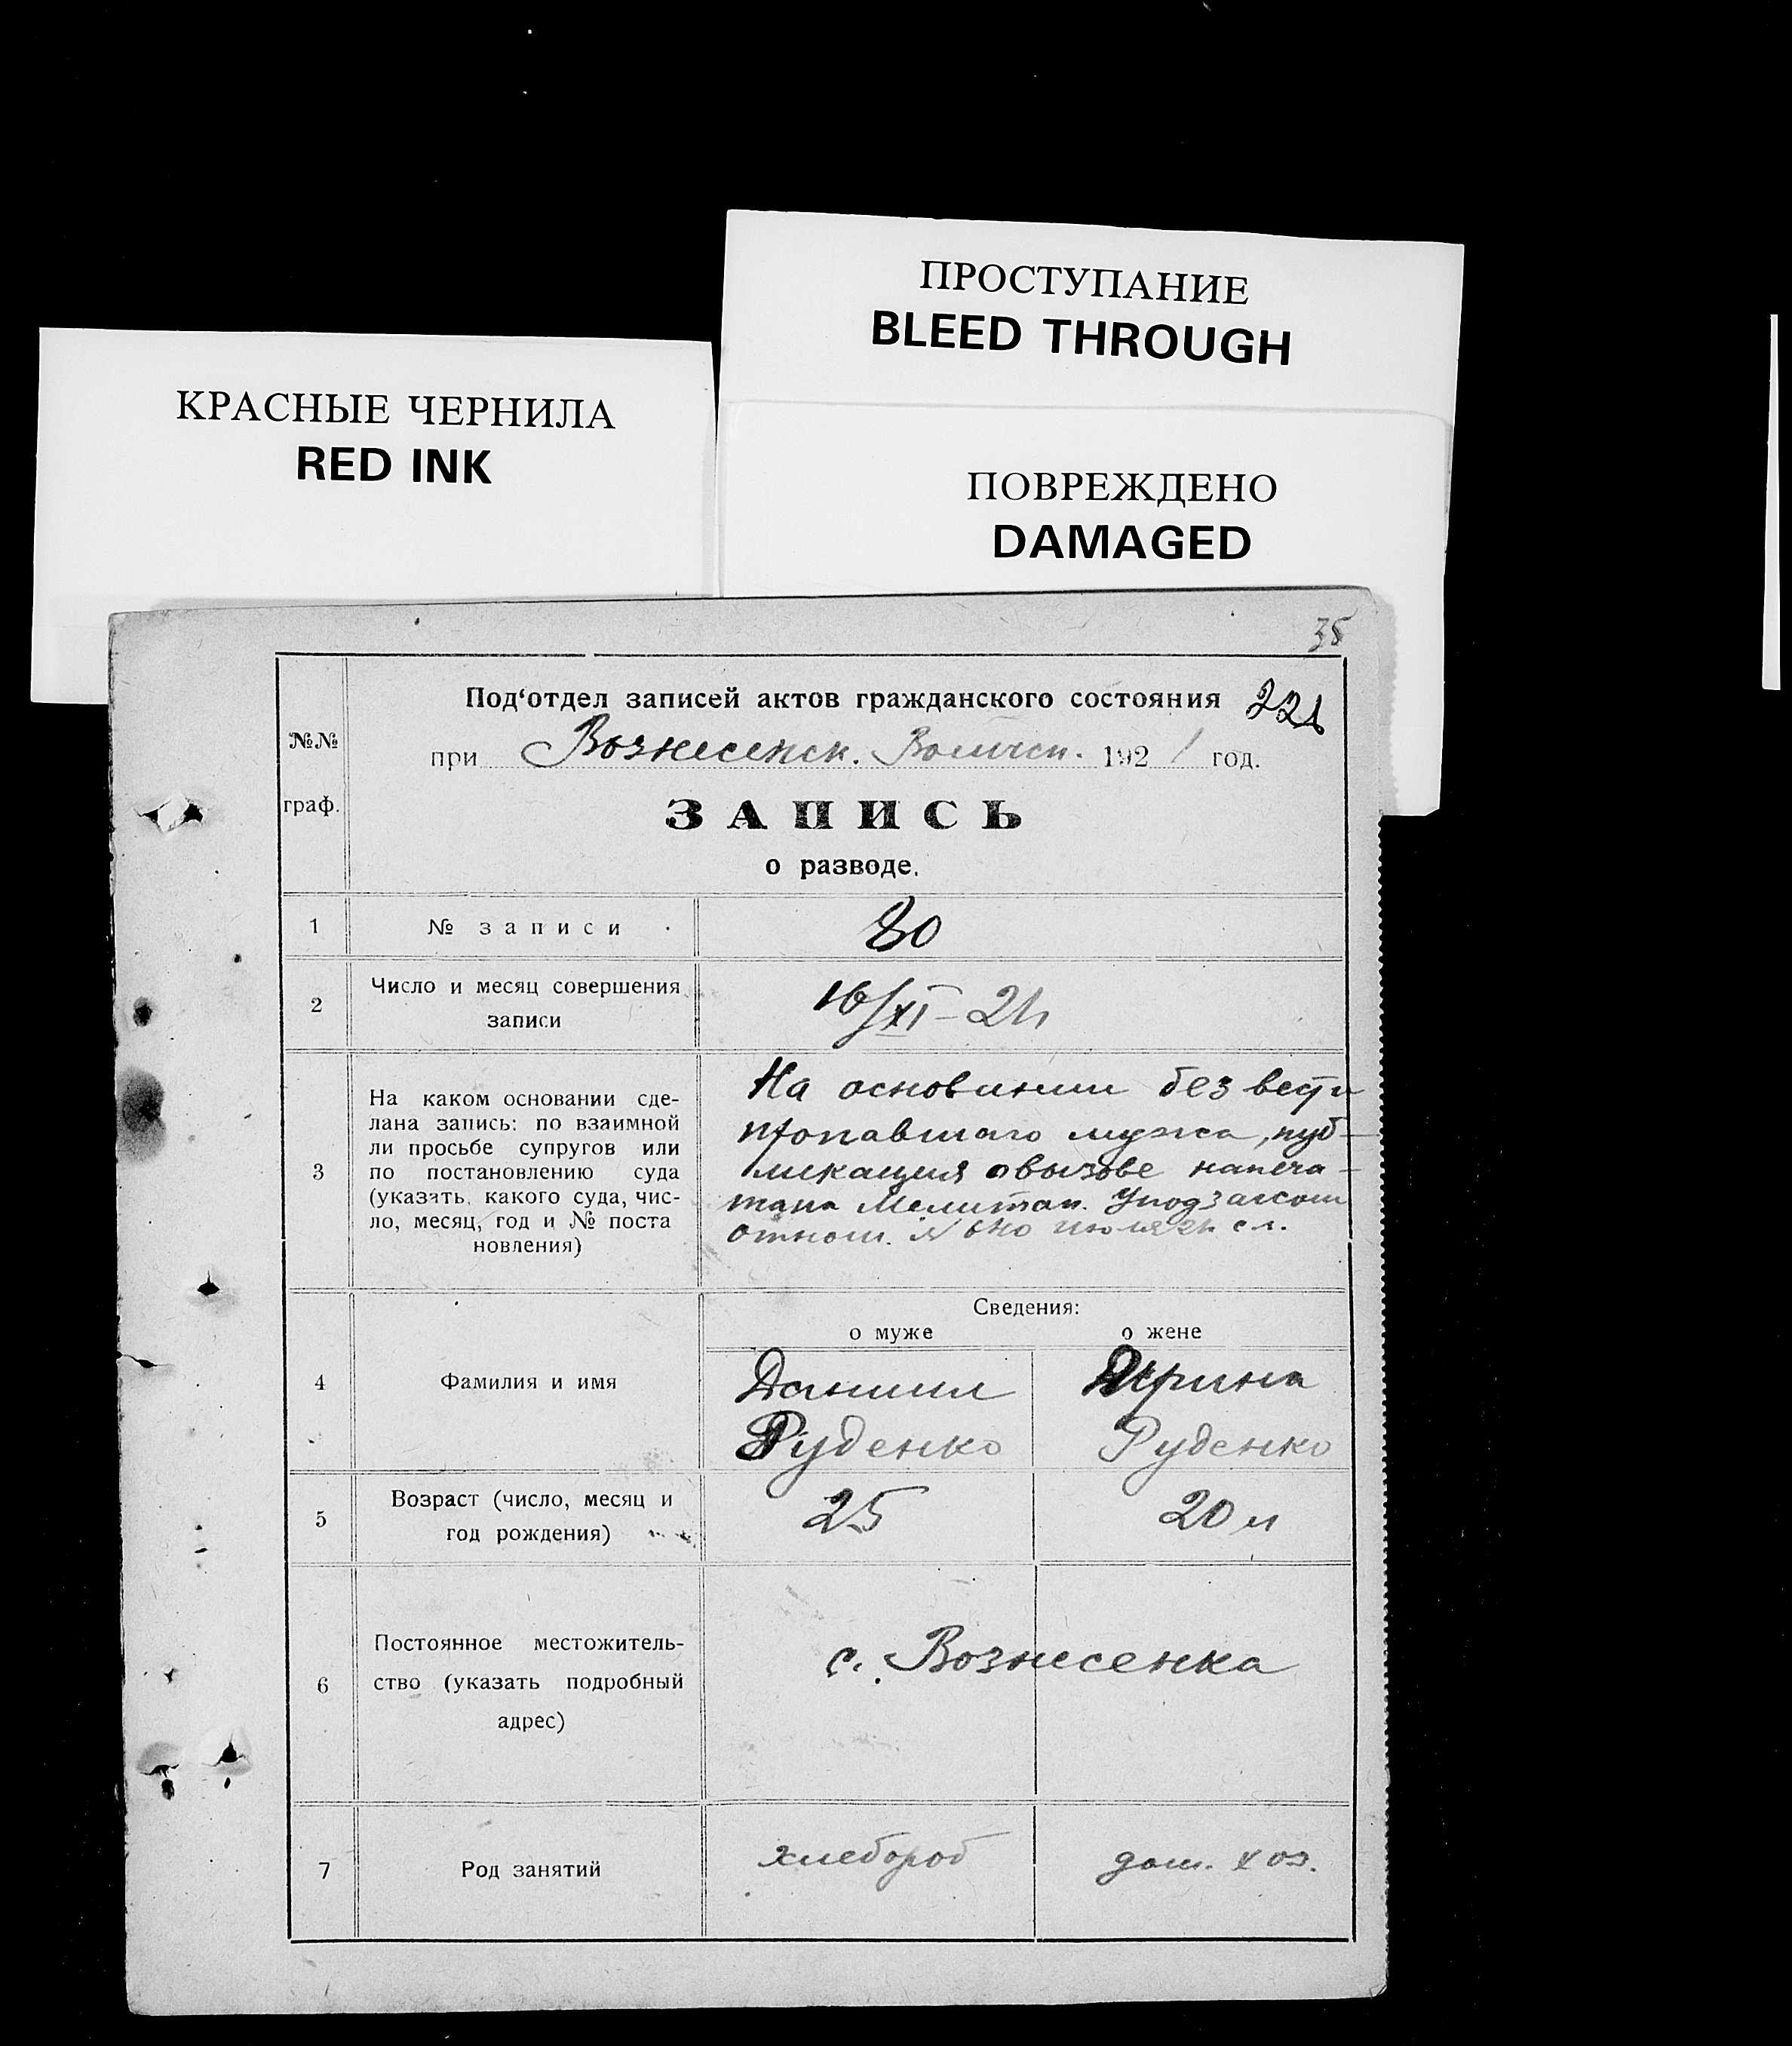 ПРОСТУПАНИЕ
BLEED THROUGH
КРАСНЫЕ ЧЕРНИЛА
RED INK
ПОВРЕЖДЕНО
DAMAGED
Под‘отдел записей актов гражданского состояния
№№
при Вознесенск. 192 1 год.
граф.
ЗАПИСЬ
о разводе.
1 № записи 80
2 Число и месяц совершения записи
16/XI – 21
3
На каком основании сде-
лана запись: по взаимной
ли просьбе супругов или
по постановлению суда
(указать, какого суда, чис-
ло, месяц, год и № поста
новления)
На основании без вести
пропавшаго мужа, пуб-
ликация о вызове напеча-
тана Мелитоп. Уподзагсом
отнош. №
Сведения:
о муже о жене
4 Фамилия и имя
Даниил Ирина
Руденко Руденко
5 Возраст (число, месяц и
год рождения)
25 20
6
Постоянное местожитель-
ство (указать подробный
адрес)
с. Вознесенка
7 Род занятий хлебороб дом. хоз.